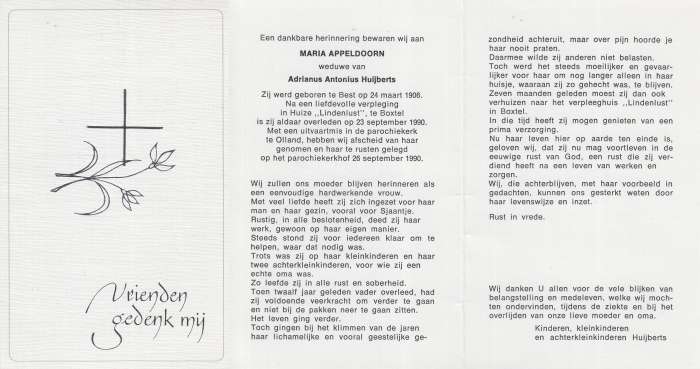 Vrienden
gedenk mij
Een dankbare herinnering bewaren wij aan
MARIA APPELDOORN
weduwe van
Adrianus Antonius Huijberts
Zij werd geboren te Best op 24 maart 1906.
Na een liefdevolle verpleging
in Huize ,,Lindenlust", te Boxtel
is zij aldaar overleden op 23 september 1990.
Met een uitvaartmis in de parochiekerk
te Olland, hebben wij afscheid van haar
genomen en haar te rusten gelegd
op het parochiekerkhof 26 september 1990.
Wij zullen ons moeder blijven herinneren als
een eenvoudige hardwerkende vrouw.
Met veel liefde heeft zij zich ingezet voor haar
man en haar gezin, vooral voor Sjaantje.
Rustig, in alle beslotenheid, deed zij haar
werk, gewoon op haar eigen manier.
Steeds stond zij voor iedereen klaar om te
helpen, waar dat nodig was.
Trots was zij op haar kleinkinderen en haar
twee achterkleinkinderen, voor wie zij een
echte oma was.
Zo leefde zij in alle rust en soberheid.
Toen twaalf jaar geleden vader overleed, had
zij voldoende veerkracht om verder te gaan
en niet bij de pakken neer te gaan zitten.
Het leven ging verder.
Toch gingen bij het klimmen van de jaren
haar lichamelijke en vooral geestelijke ge-
zondheid achteruit, maar over pijn hoorde je
haar nooit praten.
Daarmee wilde zij anderen niet belasten.
Toch werd het steeds moeilijker en gevaar-
lijker voor haar om nog langer alleen in haar
huisje, waaraan zij zo gehecht was, te blijven.
Zeven maanden geleden moest zij dan ook
verhuizen naar het verpleeghuis ,,Lindenlust"
in Boxtel.
In die tijd heeft zij mogen genieten van een
prima verzorging.
Nu haar leven hier op aarde ten einde is,
geloven wij, dat zij nu mag voortleven in de
eeuwige rust van God, een rust die zij ver-
diend heeft na een leven van werken en
zorgen.
Wij, die achterblijven, met haar voorbeeld in
gedachten, kunnen ons gesterkt weten door
haar levenswijze en inzet.
Rust in vrede.
Wij danken U allen voor de vele blijken van
belangstelling en medeleven, welke wij moch-
ten ondervinden, tijdens de ziekte en bij het
overlijden van onze lieve moeder en oma.
Kinderen, kleinkinderen
en achterkleinkinderen Huijberts